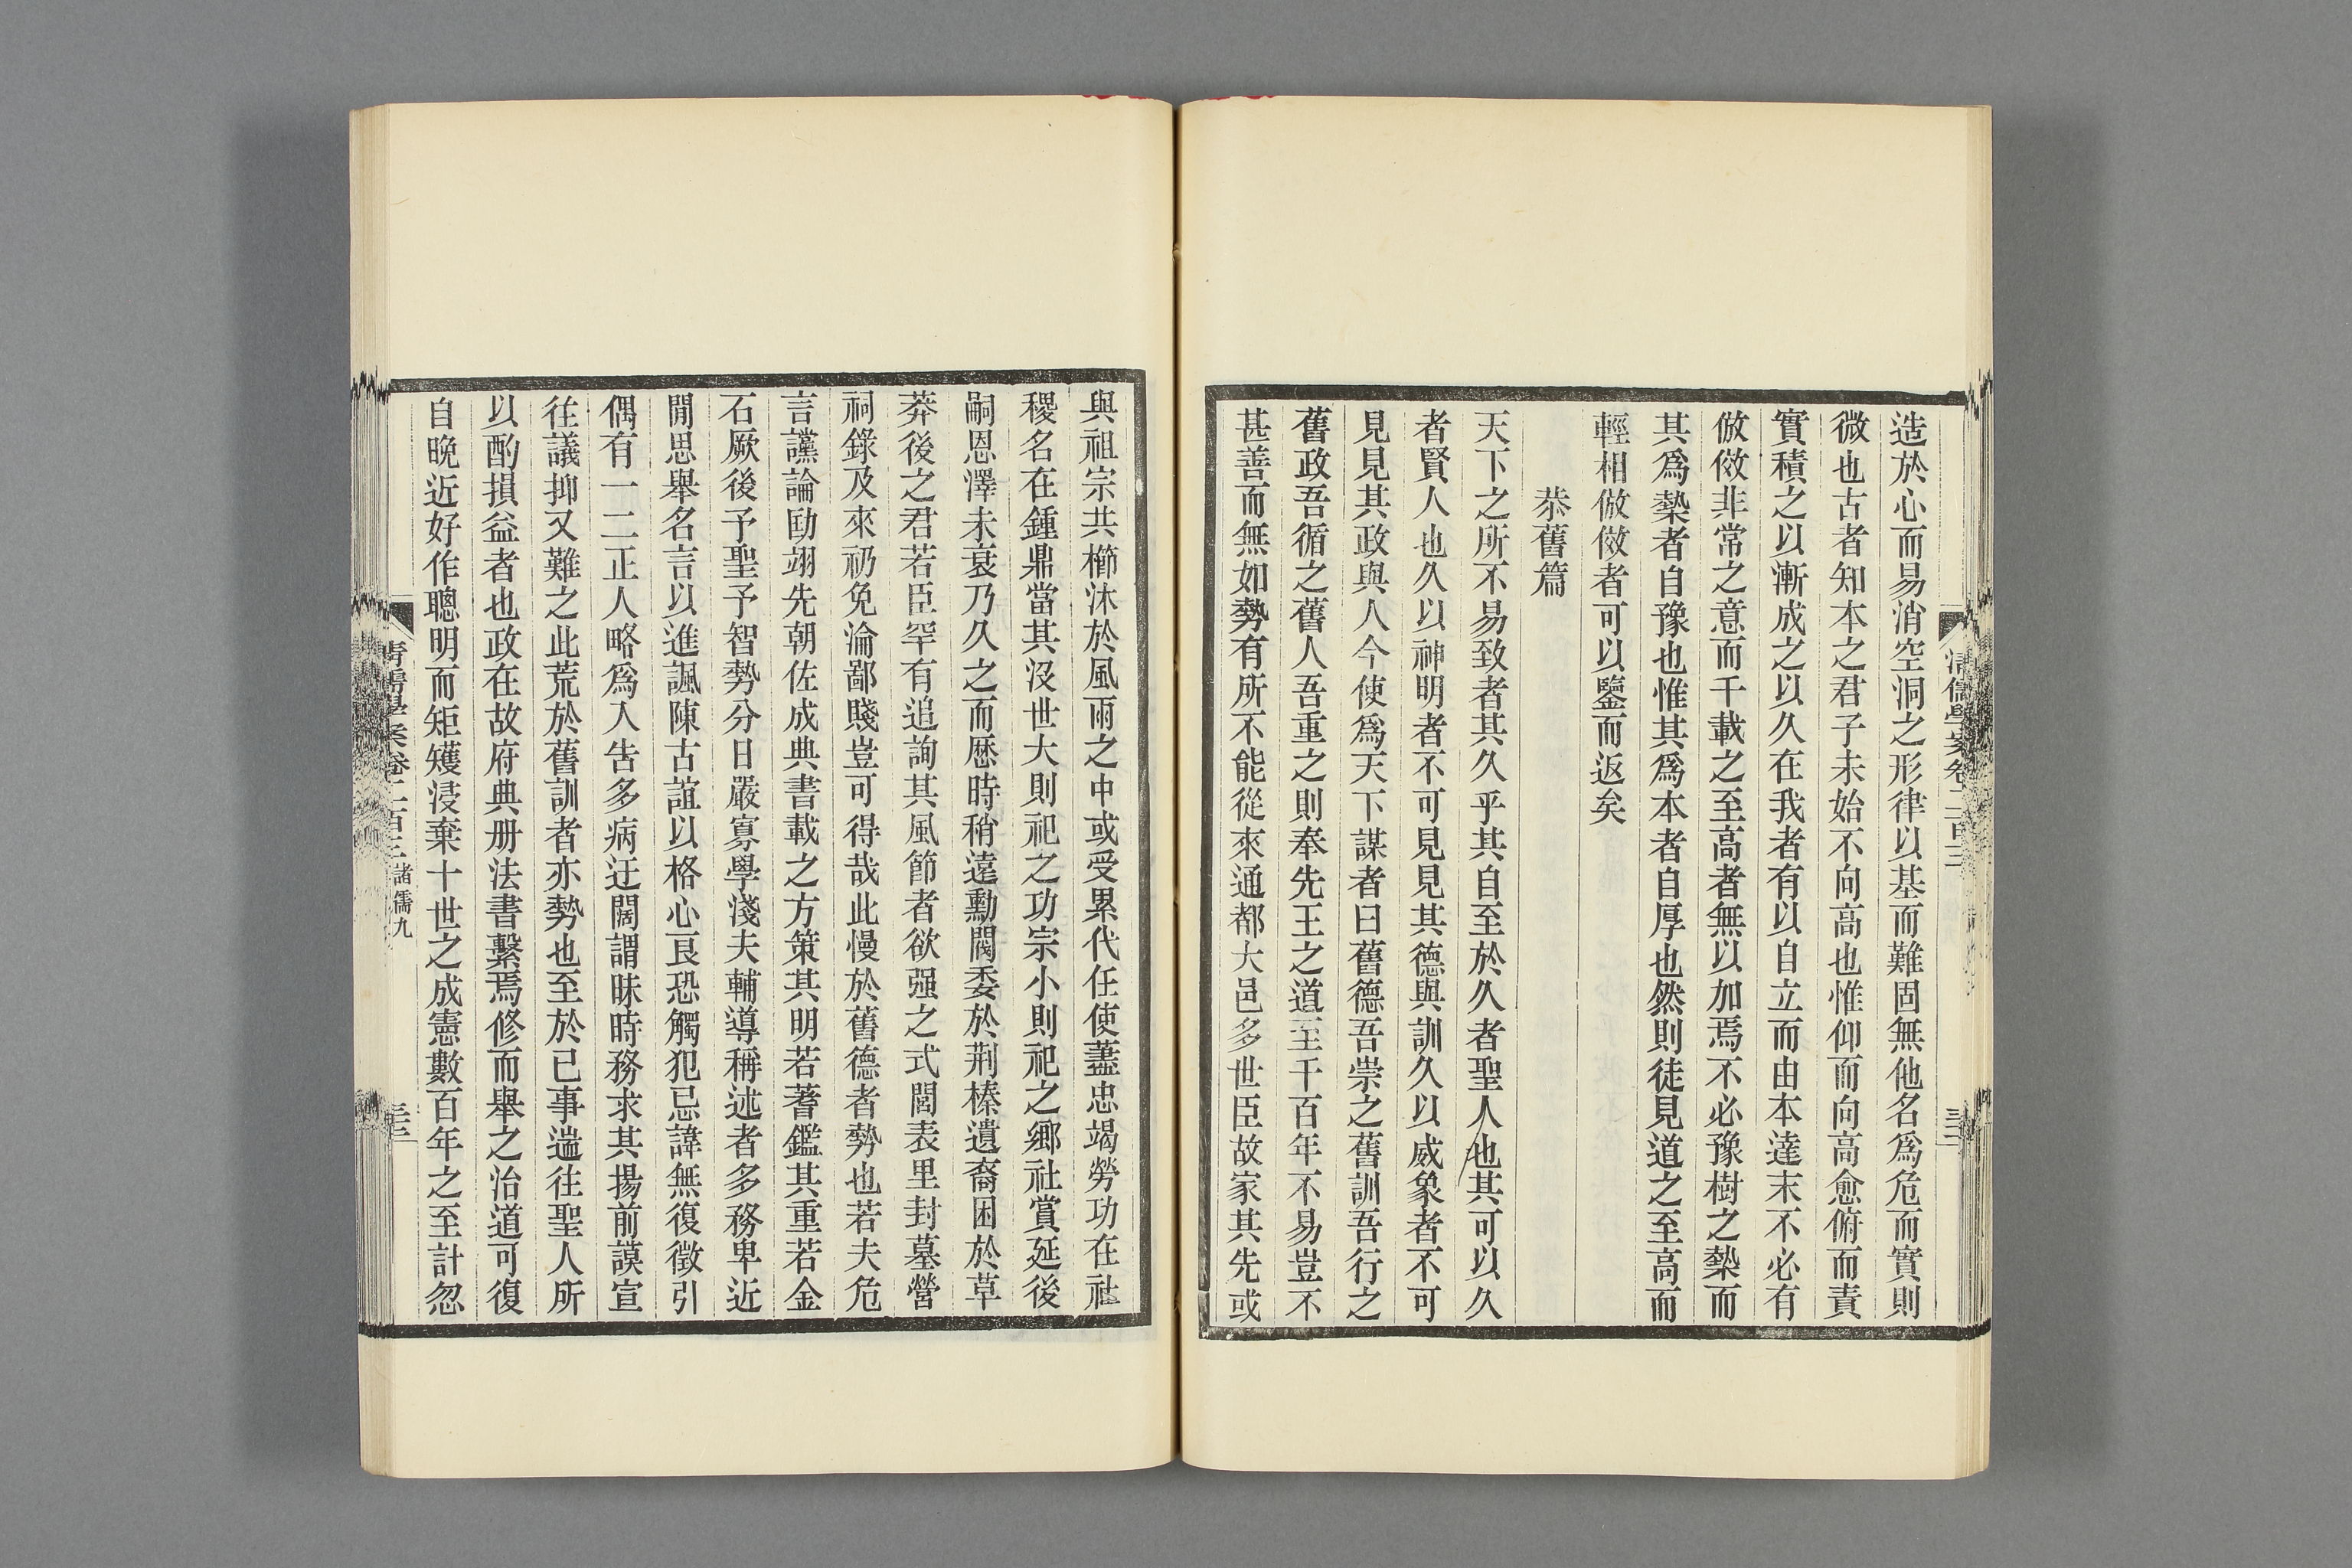 造於心而易消空洞之形律以基而難固無他名爲危而實則
微也古者知本之君子未始不向高也惟仰而向高愈俯而責
實積之以漸成之以久在我者有以自立而由本達末不必有
倣傚非常之意而千載之至高者無以加焉不必豫樹之槷而
其爲槷者自豫也惟其爲本者自厚也然則徒見道之至高而
輕相倣傚者可以鑒而返矣
恭舊篇
天下之所不易致者其久乎其自至於久者聖人也其可以久
者賢人也久以神明者不可見見其德與訓久以威象者不可
見見其政與人今使爲天下謀者曰舊德吾崇之舊訓吾行之
舊政吾循之舊人吾重之則奉先王之道至千百年不易豈不
甚善而無如勢有所不能從來通都大邑多世臣故家其先或
與祖宗共櫛沐於風雨之中或受累代任使藎忠竭勞功在社
稷名在鍾鼎當其沒世大則祀之功宗小則祀之鄉社賞延後
嗣恩澤未衰乃久之而歷時稍遠勳閥委於荆榛遺裔困於草
莽後之君若臣罕有追詢其風節者欲强之式閭表里封墓營
祠錄及來礽免淪鄙賤豈可得哉此慢於舊德者勢也若夫危
言讜論劻翊先朝佐成典書載之方策其明若蓍鑑其重若金
石厥後予聖予智勢分日嚴寡學淺夫輔導稱述者多務卑近
閒思舉名言以進諷陳古誼以格心艮恐觸犯忌諱無復徵引
偶有一二正人略爲入告多病迂闊謂昧時務求其揚前謨宣
往議抑又難之此荒於舊訓者亦勢也至於已事遄往聖人所
以酌損益者也政在故府典册法書繫焉修而舉之治道可復
自晚近好作聰明而矩矱浸棄十世之成憲數百年之至計忽
清儒學案卷二百三 諸儒九